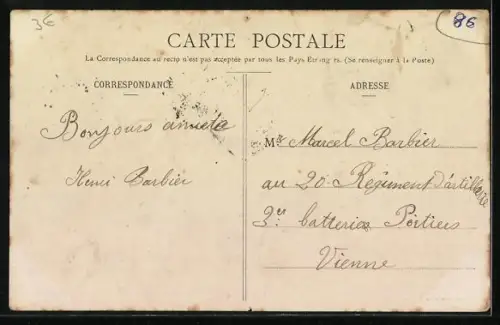 3€
86
CARTE POSTALE
La Correspondance au recto n'est pas acceptée par tous les Pays Étrangers. (Se renseigner à la Poste)
CORRESPONDANCE
Bonjours
Henri Barbier
ADRESSE
Mr Marcel Barbier
au 20 Régiment d'artillerie
batteries Poitiers
Vienne